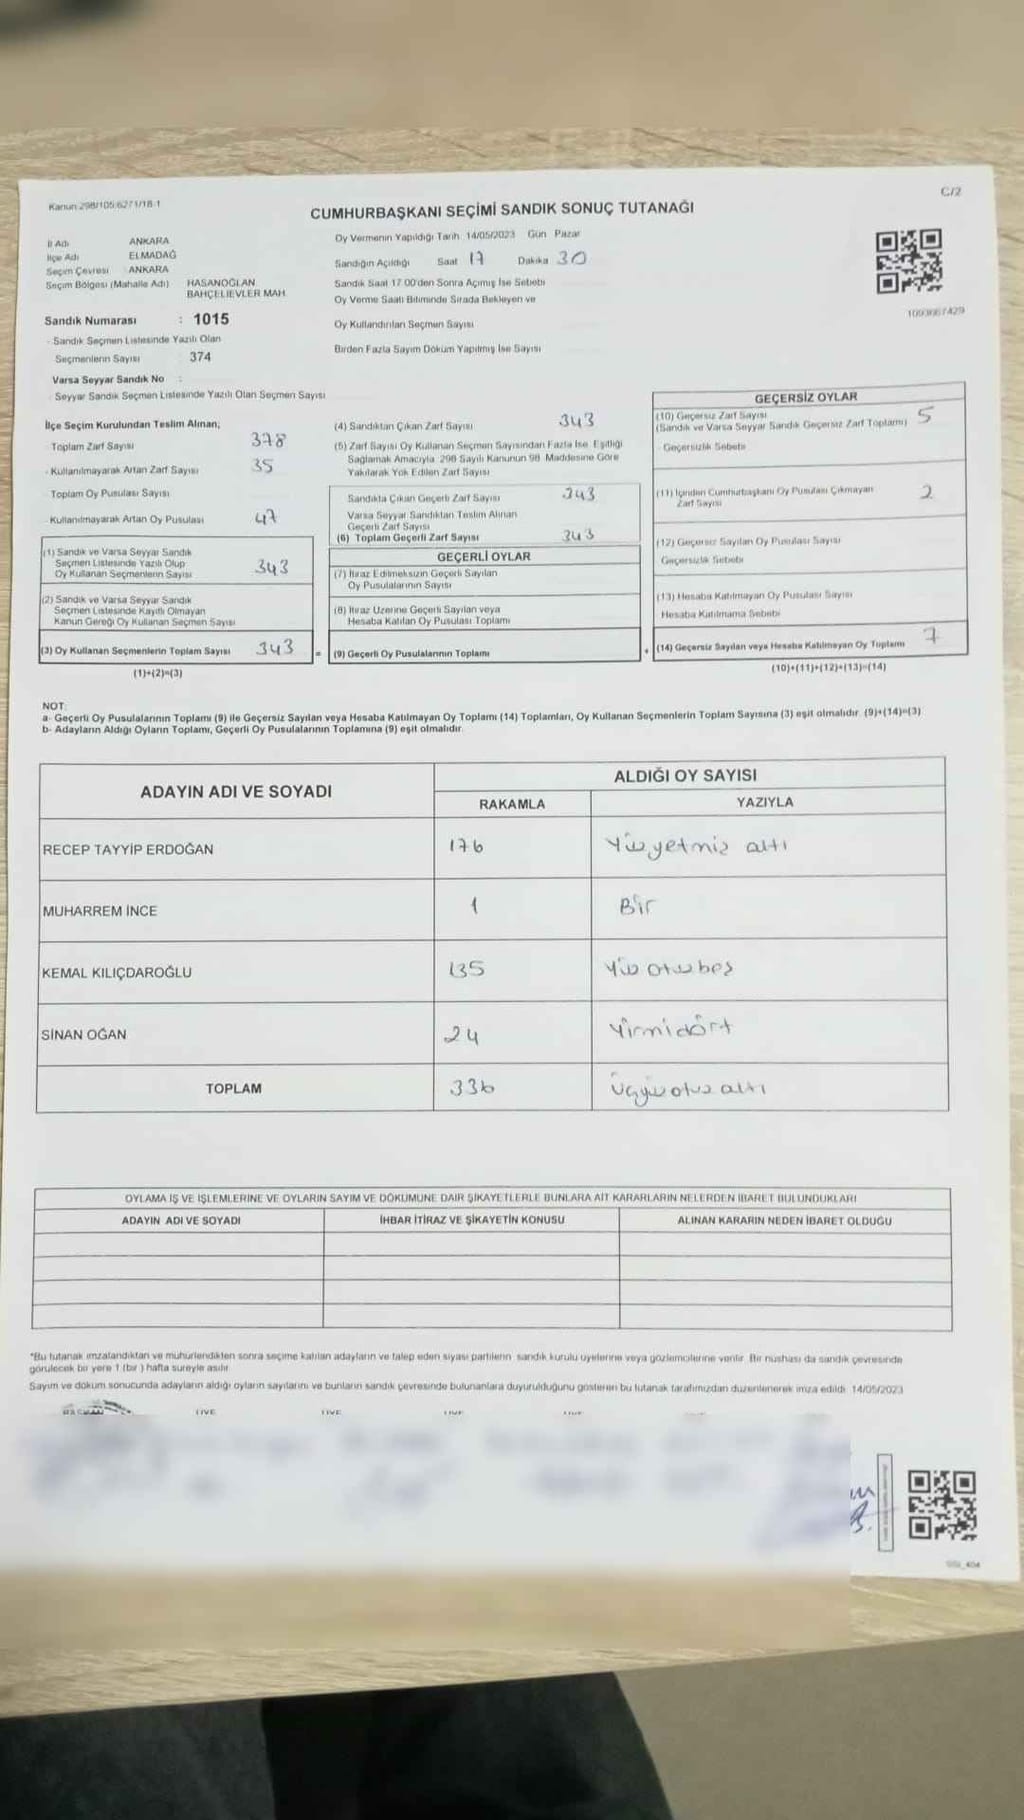 C/2
Kanun 298/105;6271/18-1
CUMHURBAŞKANI SEÇİMİ SANDIK SONUÇ TUTANAĞI
İl Adı ANKARA
İlçe Adı ELMADAĞ
Seçim Çevresi ANKARA
Seçim Bölgesi (Mahalle Adı) HASANOĞLAN BAHÇELİEVLER MAH.
Sandık Numarası : 1015
Sandık Seçmen Listesinde Yazılı Olan
Seçmenlerin Sayısı 374
Varsa Seyyar Sandık No :
Seyyar Sandık Seçmen Listesinde Yazılı Olan Seçmen Sayısı
Oy Vermenin Yapıldığı Tarih 14/05/2023 Gün Pazar
Sandığın Açıldığı Saat 17 Dakika 30
Sandık Saat 17.00'den Sonra Açımış İse Sebebi
Oy Verme Saati Bitiminde Sırada Bekleyen ve
Oy Kullandırılan Seçmen Sayısı
Birden Fazla Sayım Döküm Yapılmış İse Sayısı
1093667429
İlçe Seçim Kurulundan Teslim Alınan;
Toplam Zarf Sayısı 378
Kullanılmayarak Artan Zarf Sayısı 35
Toplam Oy Pusulası Sayısı
Kullanılmayarak Artan Oy Pusulası 47
(1) Sandık ve Varsa Seyyar Sandık
Seçmen Listesinde Yazılı Olup
Oy Kullanan Seçmenlerin Sayısı 343
(2) Sandık ve Varsa Seyyar Sandık
Seçmen Listesinde Kayıtlı Olmayan
Kanun Gereği Oy Kullanan Seçmen Sayısı
(3) Oy Kullanan Seçmenlerin Toplam Sayısı 343
(1)+(2)=(3)
(4) Sandıktan Çıkan Zarf Sayısı 343
(5) Zarf Sayısı Oy Kullanan Seçmen Sayısından Fazla İse Eşitliği
Sağlamak Amacıyla 298 Sayılı Kanunun 98. Maddesine Göre
Yakılarak Yok Edilen Zarf Sayısı
Sandıkta Çıkan Geçerli Zarf Sayısı 343
Varsa Seyyar Sandıktan Teslim Alınan
Geçerli Zarf Sayısı
(6) Toplam Geçerli Zarf Sayısı 343
GEÇERLİ OYLAR
(7) İtiraz Edilmeksizin Geçerli Sayılan
Oy Pusulalarının Sayısı
(8) İtiraz Üzerine Geçerli Sayılan veya
Hesaba Katılan Oy Pusulası Toplamı
= (9) Geçerli Oy Pusulalarının Toplamı
GEÇERSİZ OYLAR
(10) Geçersiz Zarf Sayısı 5
(Sandık ve Varsa Seyyar Sandık Geçersiz Zarf Toplamı)
Geçersizlik Sebebi
(11) İçinden Cumhurbaşkanı Oy Pusulası Çıkmayan 2
Zarf Sayısı
(12) Geçersiz Sayılan Oy Pusulası Sayısı
Geçersizlik Sebebi
(13) Hesaba Katılmayan Oy Pusulası Sayısı
Hesaba Katılmama Sebebi
+ (14) Geçersiz Sayılan veya Hesaba Katılmayan Oy Toplamı 7
(10)+(11)+(12)+(13)=(14)
NOT:
a- Geçerli Oy Pusulalarının Toplamı (9) ile Geçersiz Sayılan veya Hesaba Katılmayan Oy Toplamı (14) Toplamları, Oy Kullanan Seçmenlerin Toplam Sayısına (3) eşit olmalıdır. (9)+(14)=(3)
b- Adayların Aldığı Oyların Toplamı, Geçerli Oy Pusulalarının Toplamına (9) eşit olmalıdır.
ADAYIN ADI VE SOYADI ALDIĞI OY SAYISI
RAKAMLA YAZIYLA
RECEP TAYYİP ERDOĞAN 176 Yüzyetmiş altı
MUHARREM İNCE 1 Bir
KEMAL KILIÇDAROĞLU 135 Yüz otuz beş
SİNAN OĞAN 24 Yirmidört
TOPLAM 336 Üçyüz otuz altı
OYLAMA İŞ VE İŞLEMLERİNE VE OYLARIN SAYIM VE DÖKÜMÜNE DAİR ŞİKAYETLERLE BUNLARA AİT KARARLARIN NELERDEN İBARET BULUNDUKLARI
ADAYIN ADI VE SOYADI İHBAR İTİRAZ VE ŞİKAYETİN KONUSU ALINAN KARARIN NEDEN İBARET OLDUĞU
*Bu tutanak imzalandıktan ve mühürlendikten sonra seçime katılan adayların ve talep eden siyasi partilerin sandık kurulu üyelerine veya gözlemcilerine verilir. Bir nüshası da sandık çevresinde
görülecek bir yere 1 (bir ) hafta süreyle asılır.
Sayım ve döküm sonucunda adayların aldığı oyların sayılarını ve bunların sandık çevresinde bulunanlara duyurulduğunu gösteren bu tutanak tarafımızdan düzenlenerek imza edildi. 14/05/2023